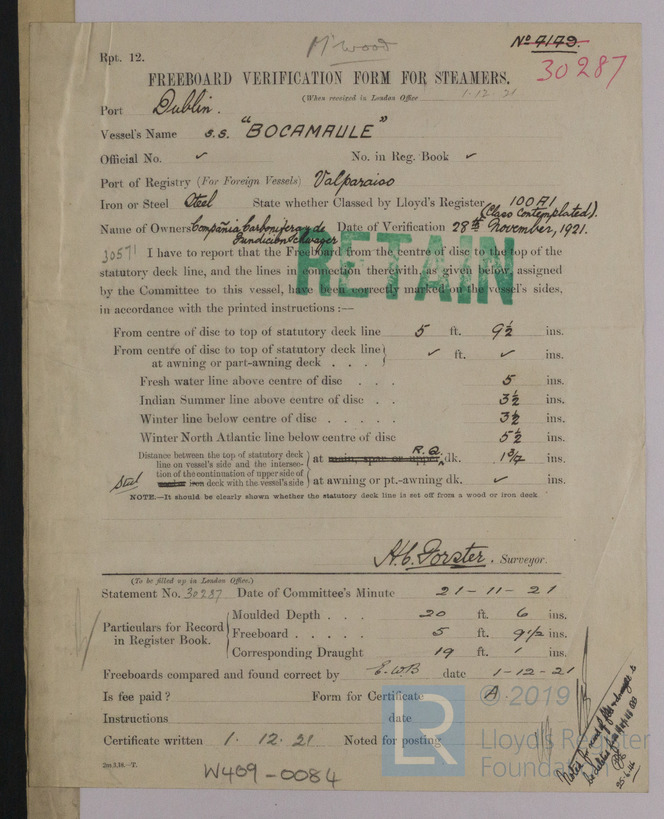 Mr Wood
Nº 7179.
30287
Rpt. 12.
FREEBOARD VERIFICATION FORM FOR STEAMERS.
(When received in London Office 1-12-21
Port Dublin.
Vessel's Name s.s. "BOCAMAULE"
Official No. ✓ No. in Reg. Book ✓
Port of Registry (For Foreign Vessels) Valparaiso
Iron or Steel Steel State whether Classed by Lloyd's Register 100A1 (Class Contemplated).
Name of Owners Compañia Carbonifera y de Fundición Schwager Date of Verification 28th November, 1921.
30571 I have to report that the Freeboard from the centre of disc to the top of the
statutory deck line, and the lines in connection therewith, as given below, assigned
by the Committee to this vessel, have been correctly marked on the vessel's sides,
in accordance with the printed instructions :—
RETAIN
From centre of disc to top of statutory deck line 5 ft. 9½ ins.
From centre of disc to top of statutory deck line
at awning or part-awning deck . . . ✓ ft. ✓ ins.
Fresh water line above centre of disc . . . 5 ins.
Indian Summer line above centre of disc . . 3½ ins.
Winter line below centre of disc . . . . . 3½ ins.
Winter North Atlantic line below centre of disc 5½ ins.
Distance between the top of statutory deck
line on vessel's side and the intersec-
tion of the continuation of upper side of
Steel iron deck with the vessel's side
at main, spar or upper R.Q. dk. ins.
at awning or pt.-awning dk. ✓ ins.
NOTE.—It should be clearly shown whether the statutory deck line is set off from a wood or iron deck
H.C. Forster. Surveyor.
(To be filled up in London Office.)
Statement No. 30287 Date of Committee's Minute 21-11-21
Particulars for Record
in Register Book.
Moulded Depth . . . 20 ft. 6 ins.
Freeboard . . . . . 5 ft. 9½ ins.
Corresponding Draught 19 ft. 1 ins.
Freeboards compared and found correct by E.W.B date 1-12-21
Is fee paid ? Form for Certificate A
Instructions date
Certificate written 1. 12. 21 Noted for posting
W409-0084
25.6.46
LR
© 2019
Lloyd's Register
Foundation